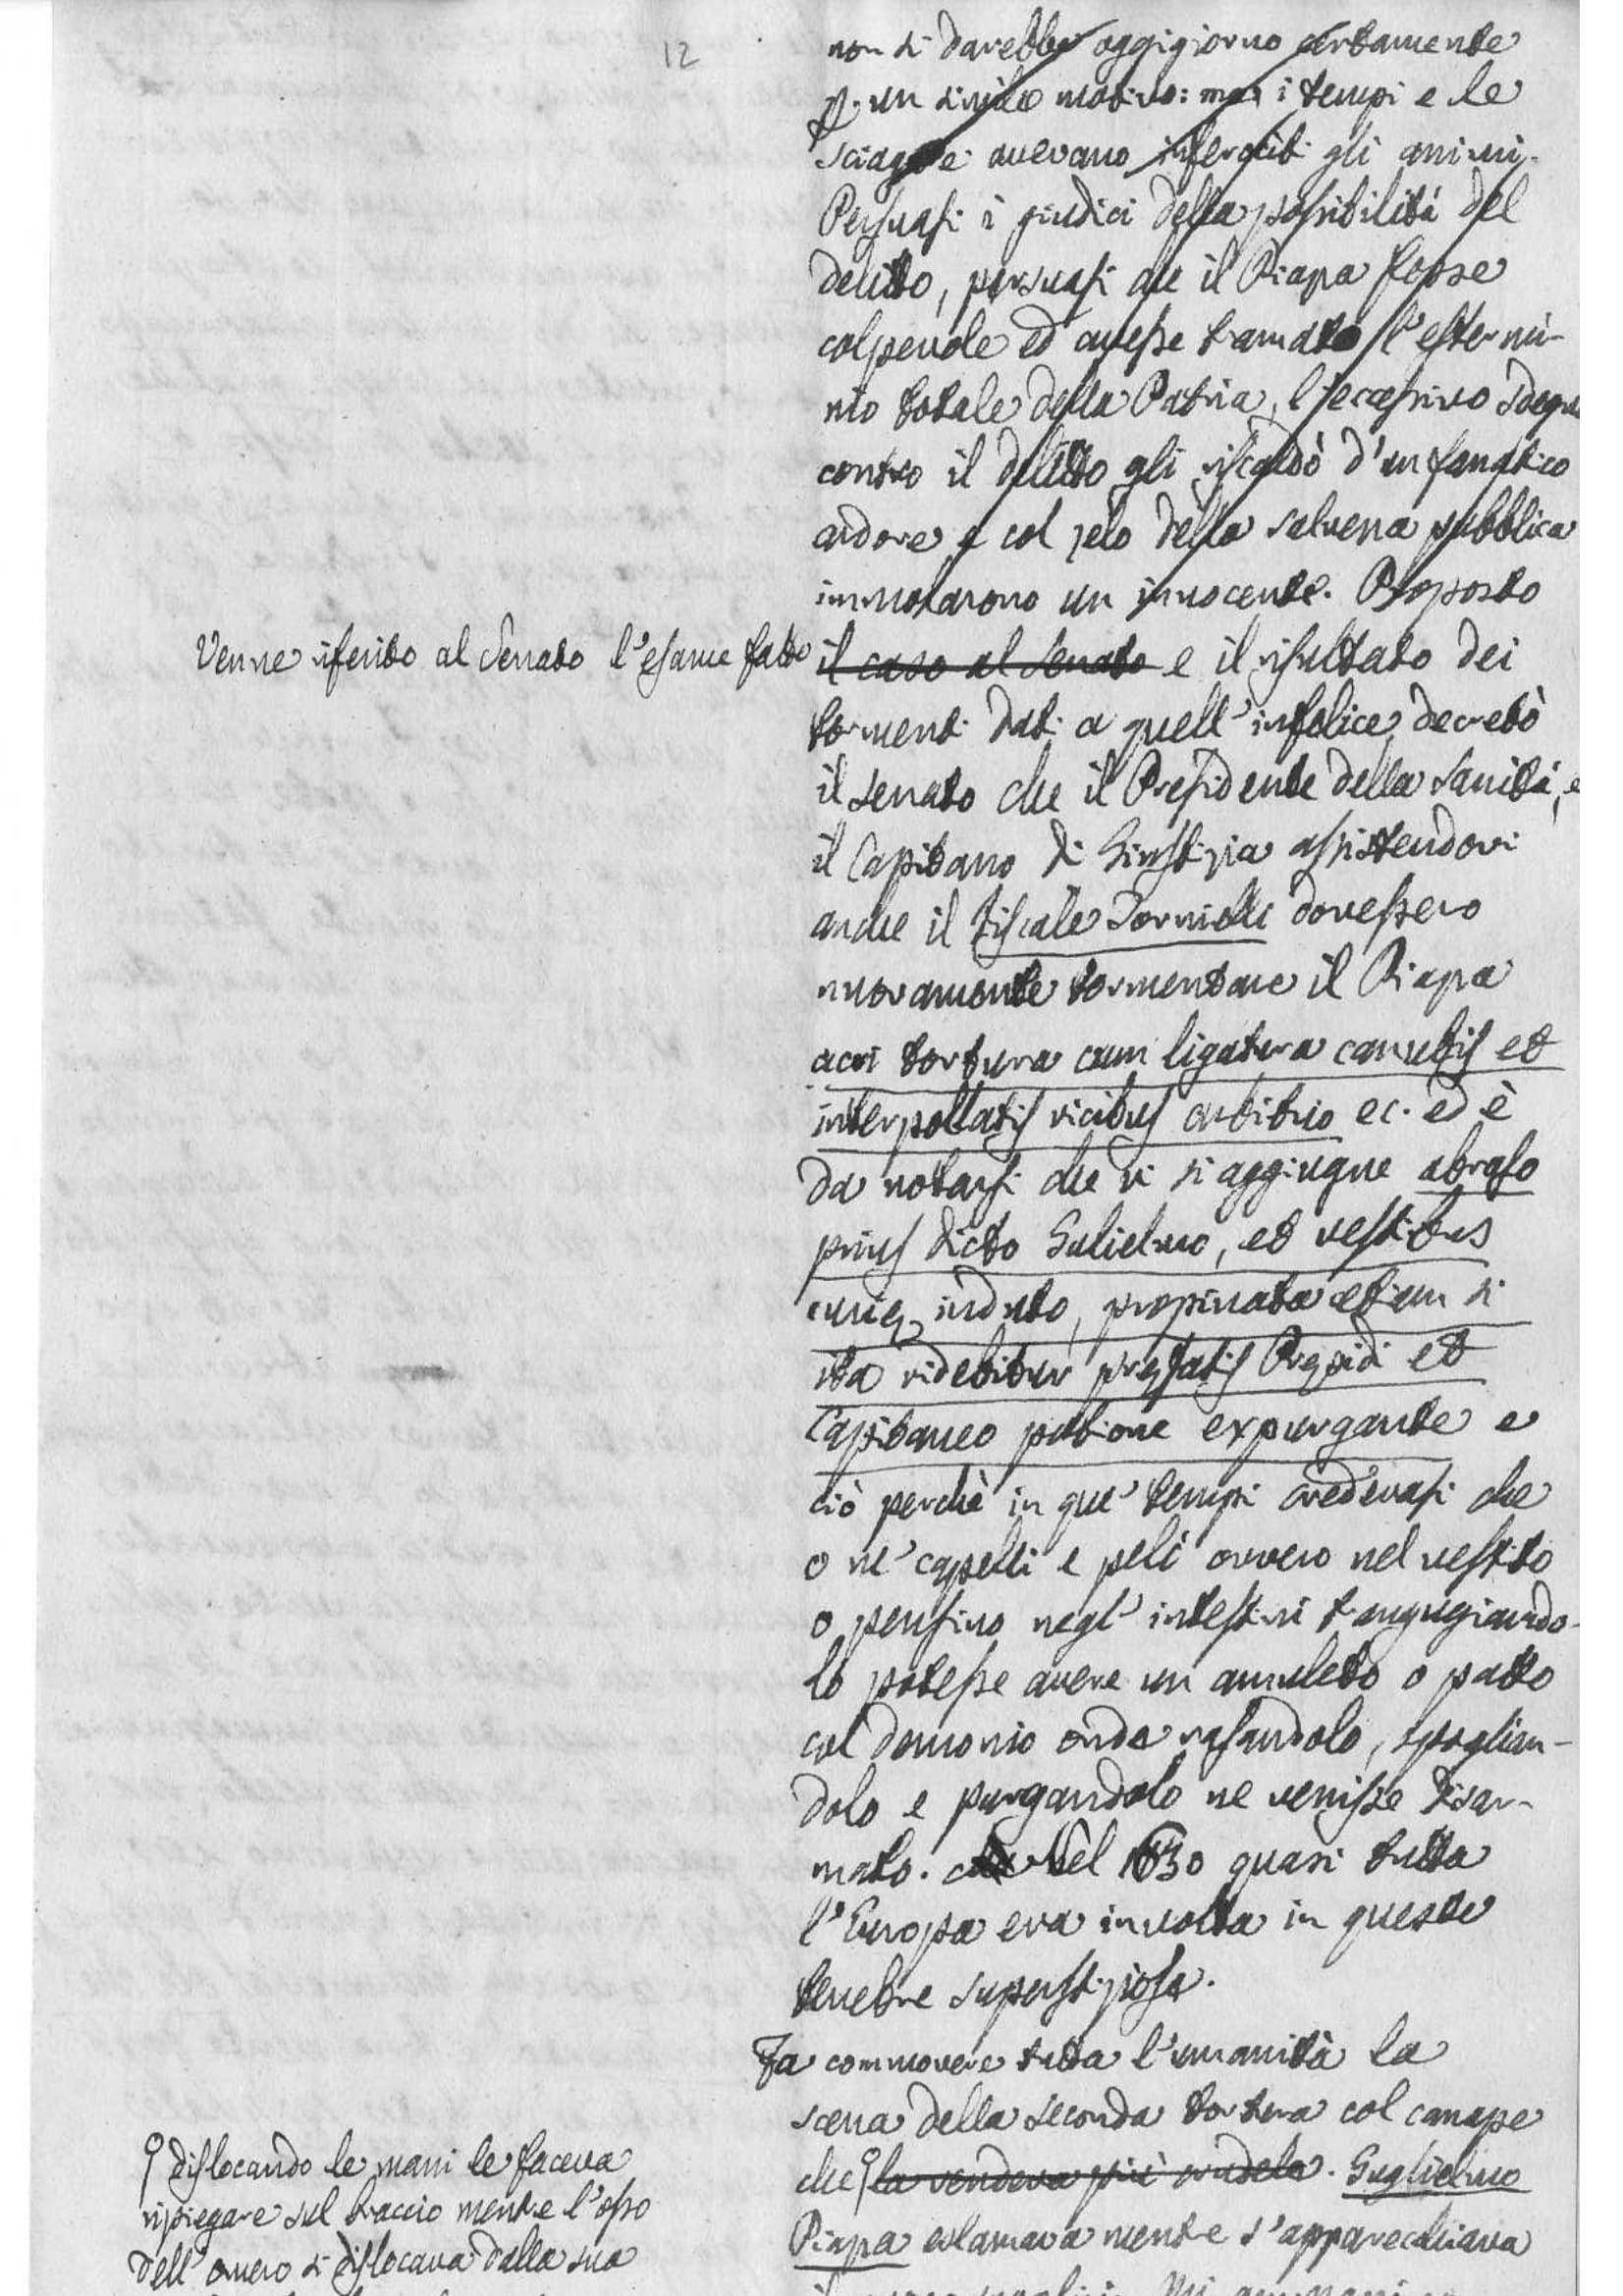 12
non si darebbe oggigiorno certamente
p. un simile motivo: ma i tempi e le
sciagure avevano inferociti gli animi.
Persuasi i giudici della possibilità del
delitto, persuasi che il Piazza fosse
colpevole ed avesse tramato l'estermi-
nio totale della Patria, l'eccessivo sdegno
contro il delitto gli riscaldò d'un fanatico
ardore e col zelo della salvezza pubblica
immolarono un innocente. Proposto
Venne riferito al Senato l'esame fatto
il caso al Senato e il risultato dei
tormenti dati a quell'infelice decretò
il Senato che il Presidente della Sanità, e
il Capitano di Giustizia assistendovi
anche il Fiscale Tornielli dovessero
nuovamente tormentare il Piazza
acri tortura cum ligatura canubis et
interpollatis vicibus arbitrio ec. ed è
da notarsi che vi si aggiugne abraso
prius dicto Gulielmo, et vestibus
curię induto, propinata etiam si
ita videbitur pręfatis Pręsidi et
Capitaneo potione expurgante e
ciò perchè in que' tempi credevasi che
o ne' capelli e peli ovvero nel vestito
o persino negl'intestini trangugiando-
lo potesse avere un amuleto o patto
col demonio onde rasandolo, spoglian-
dolo e purgandolo ne venisse disar-
mato. Nel 1630 quasi tutta
l'Europa era involta in queste
tenebre superstiziose.
Fa commovere tutta l'umanità la
scena della seconda tortura col canape
che la rendeva più crudele. Guglielmo
Piazza esclamava mentre s'apparecchiava
dislocando le mani le faceva
ripiegare sul braccio mentre l'osso
dell'omero si dislocava dalla sua